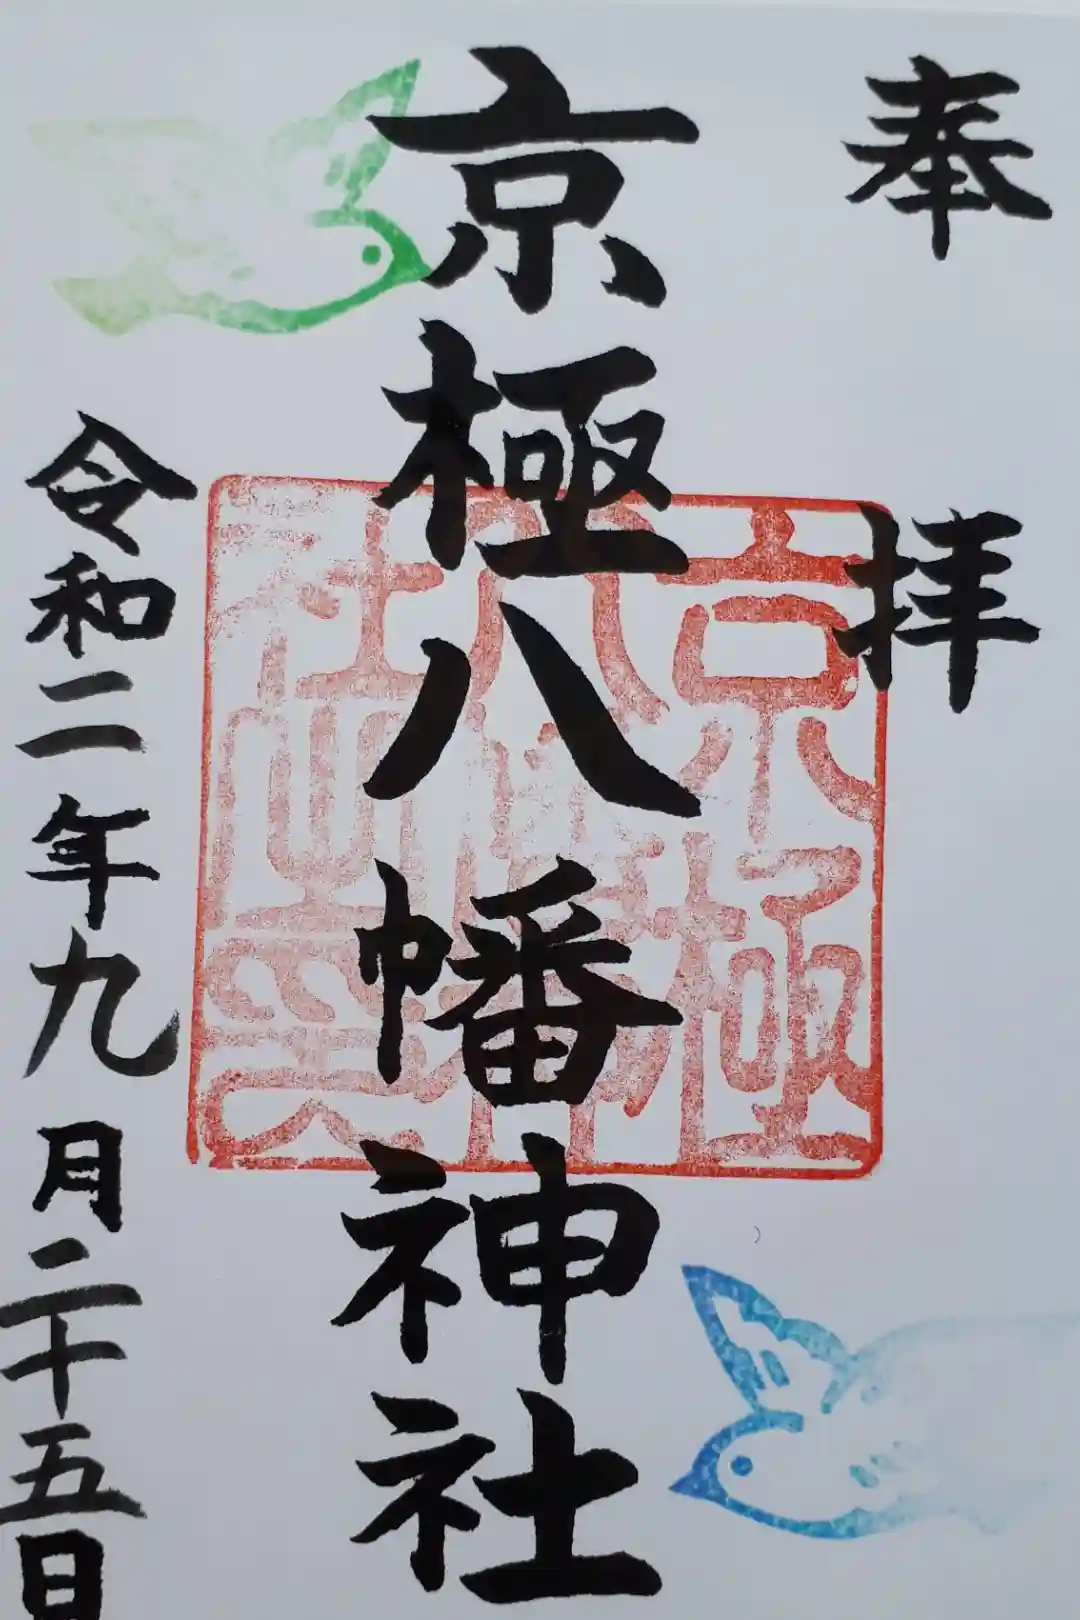 奉拝
京極八幡神社
令和二年九月二十五日
京極
八幡神
社